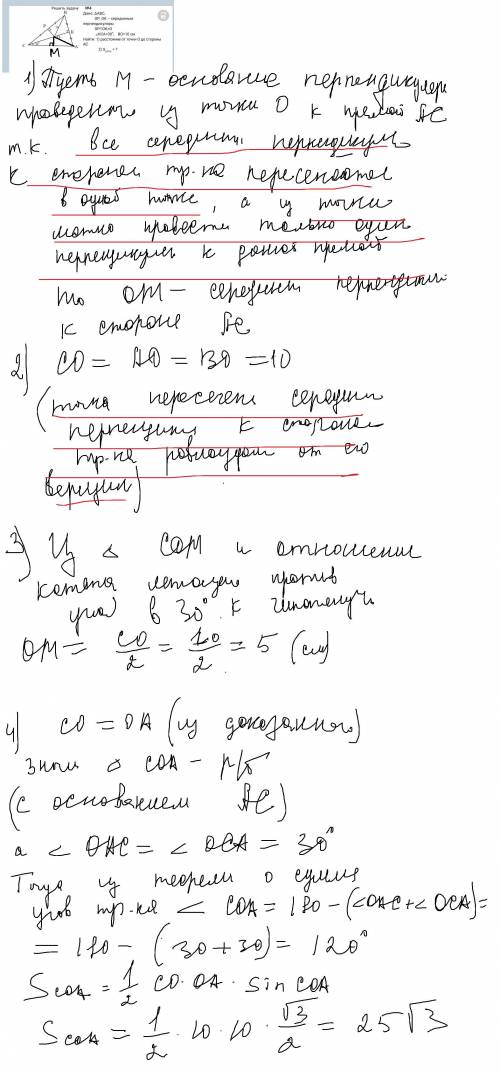 Решить задачу №4
Дано: ΔABC,
- серединные
перпендикуляры
BO=10 см
Найти: 1) расстояние от точки O до стороны
AC
M
1) Пусть M - основание перпендикуляра
проведенн из точки O к прямой AC
т.к. все середины перпендикул
к сторонам тр-ка пересекаются
в одной точке, а из точки
можно провести только один
перпендикуля к данной прямой
то OM - середин перпендик
к стороне AC
2) CO = AO = BO = 10
(точка пересечен середин
перпендик к сторонам
тр-ка равноудал от его
вершин)
3) Из Δ COM и отношении
катета лежащем против
угла в 30° к гипотенузе
OM = CO/2 = 10/2 = 5 (см)
4) CO = OA (из доказанного)
значи Δ COA - р/б
(с основанием AC)
а ∠ OAC = ∠ OCA = 30°
Тогда из теоремы о сумме
углов тр-ка ∠ COA = 180 - (∠OAC + ∠ OCA) =
= 180 - (30 + 30) = 120°
S COA = 1/2 CO · OA · sin COA
S COA = 1/2 · 10 · 10 · √3/2 = 25√3